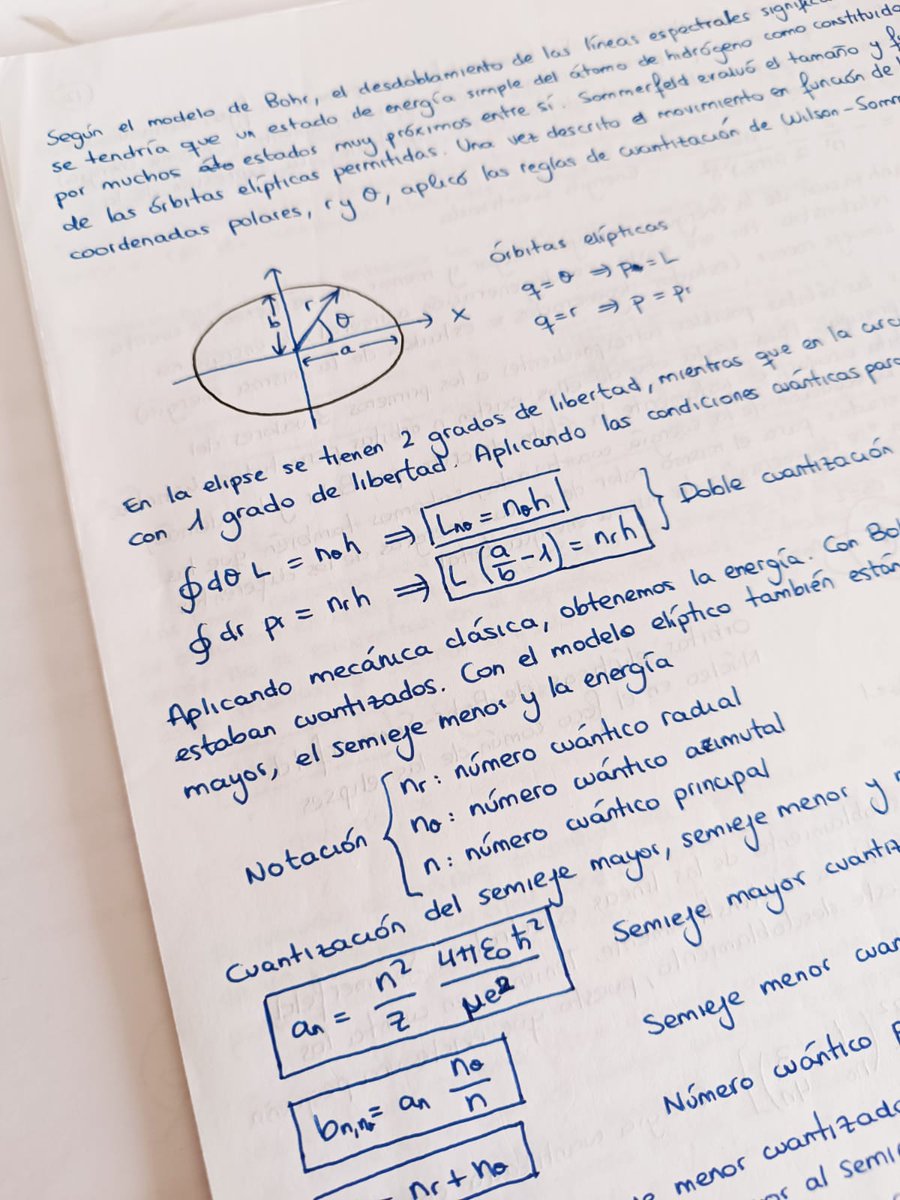 Según el modelo de Bohr, el desdoblamiento de las líneas espectrales
se tendría que un estado de energía simple del átomo de hidrógeno como constituido
por muchos estados muy próximos entre sí. Sommerfeld evaluó el tamaño y
de las órbitas elípticas permitidas. Una vez descrito el movimiento en función de
coordenadas polares, r y θ, aplicó las reglas de cuantización de Wilson-
Órbitas elípticas
q=θ ⇒ p=L
q=r ⇒ p=pr
b r θ a x
En la elipse se tienen 2 grados de libertad, mientras que en la
con 1 grado de libertad. Aplicando las condiciones cuánticas para
∮dθ L = nθh ⇒ Lnθ = nθh
∮dr pr = nrh ⇒ L (a/b - 1) = nrh
} Doble cuantización
Aplicando mecánica clásica, obtenemos la energía. Con
estaban cuantizados. Con el modelo elíptico también están
mayor, el semieje menor y la energía
Notación { nr: número cuántico radial
nθ: número cuántico azimutal
n: número cuántico principal
Cuantización del semieje mayor, semieje menor y
an = n²/Z 4πε₀ħ²/μe²
Semieje mayor
bn,nθ = an nθ/n
Semieje menor
nr + nθ
Número cuántico
menor cuantizado
al